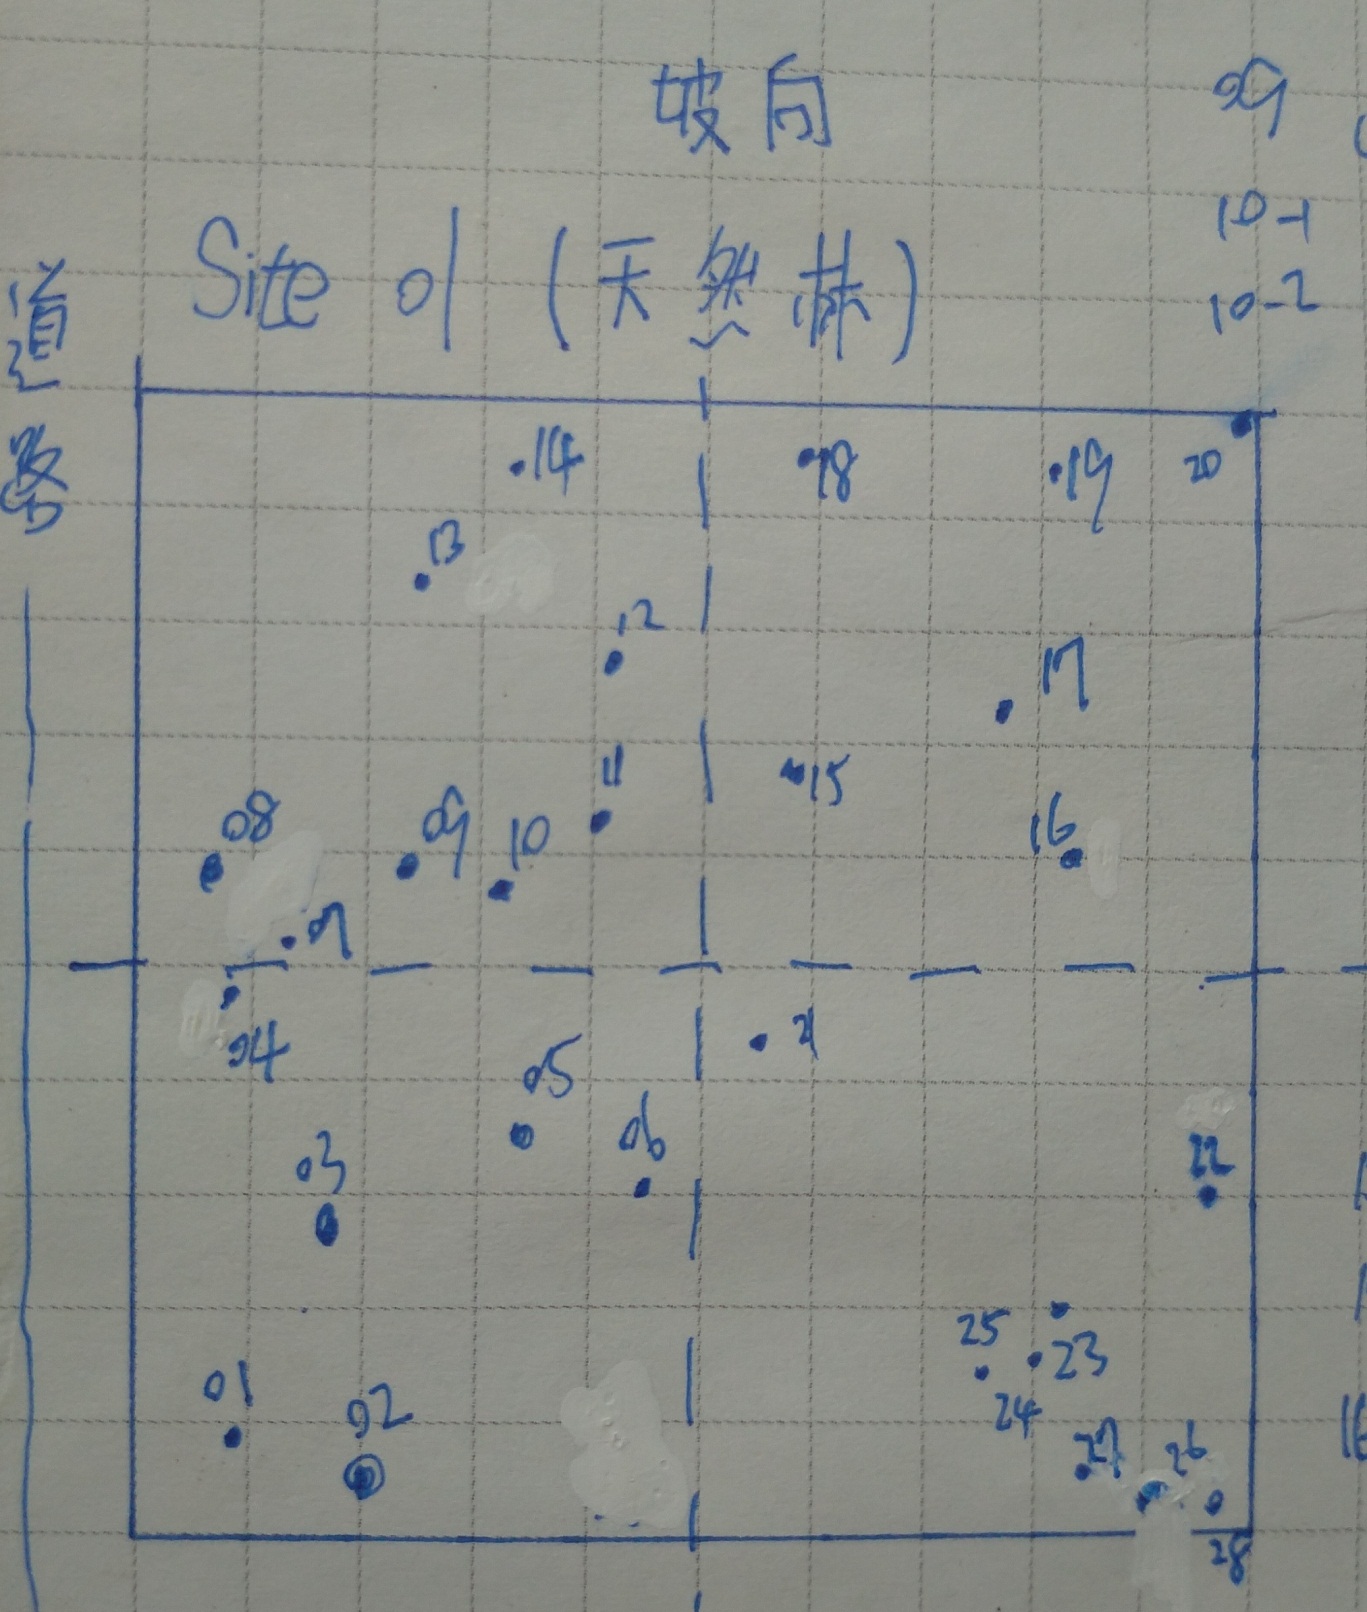 坡向
09
10-1
Site 01 (天然林)
10-2
道路
14
18
19
20
13
12
17
11
15
08
09
10
16
07
04
21
05
06
03
22
25
23
01
02
24
27
26
28